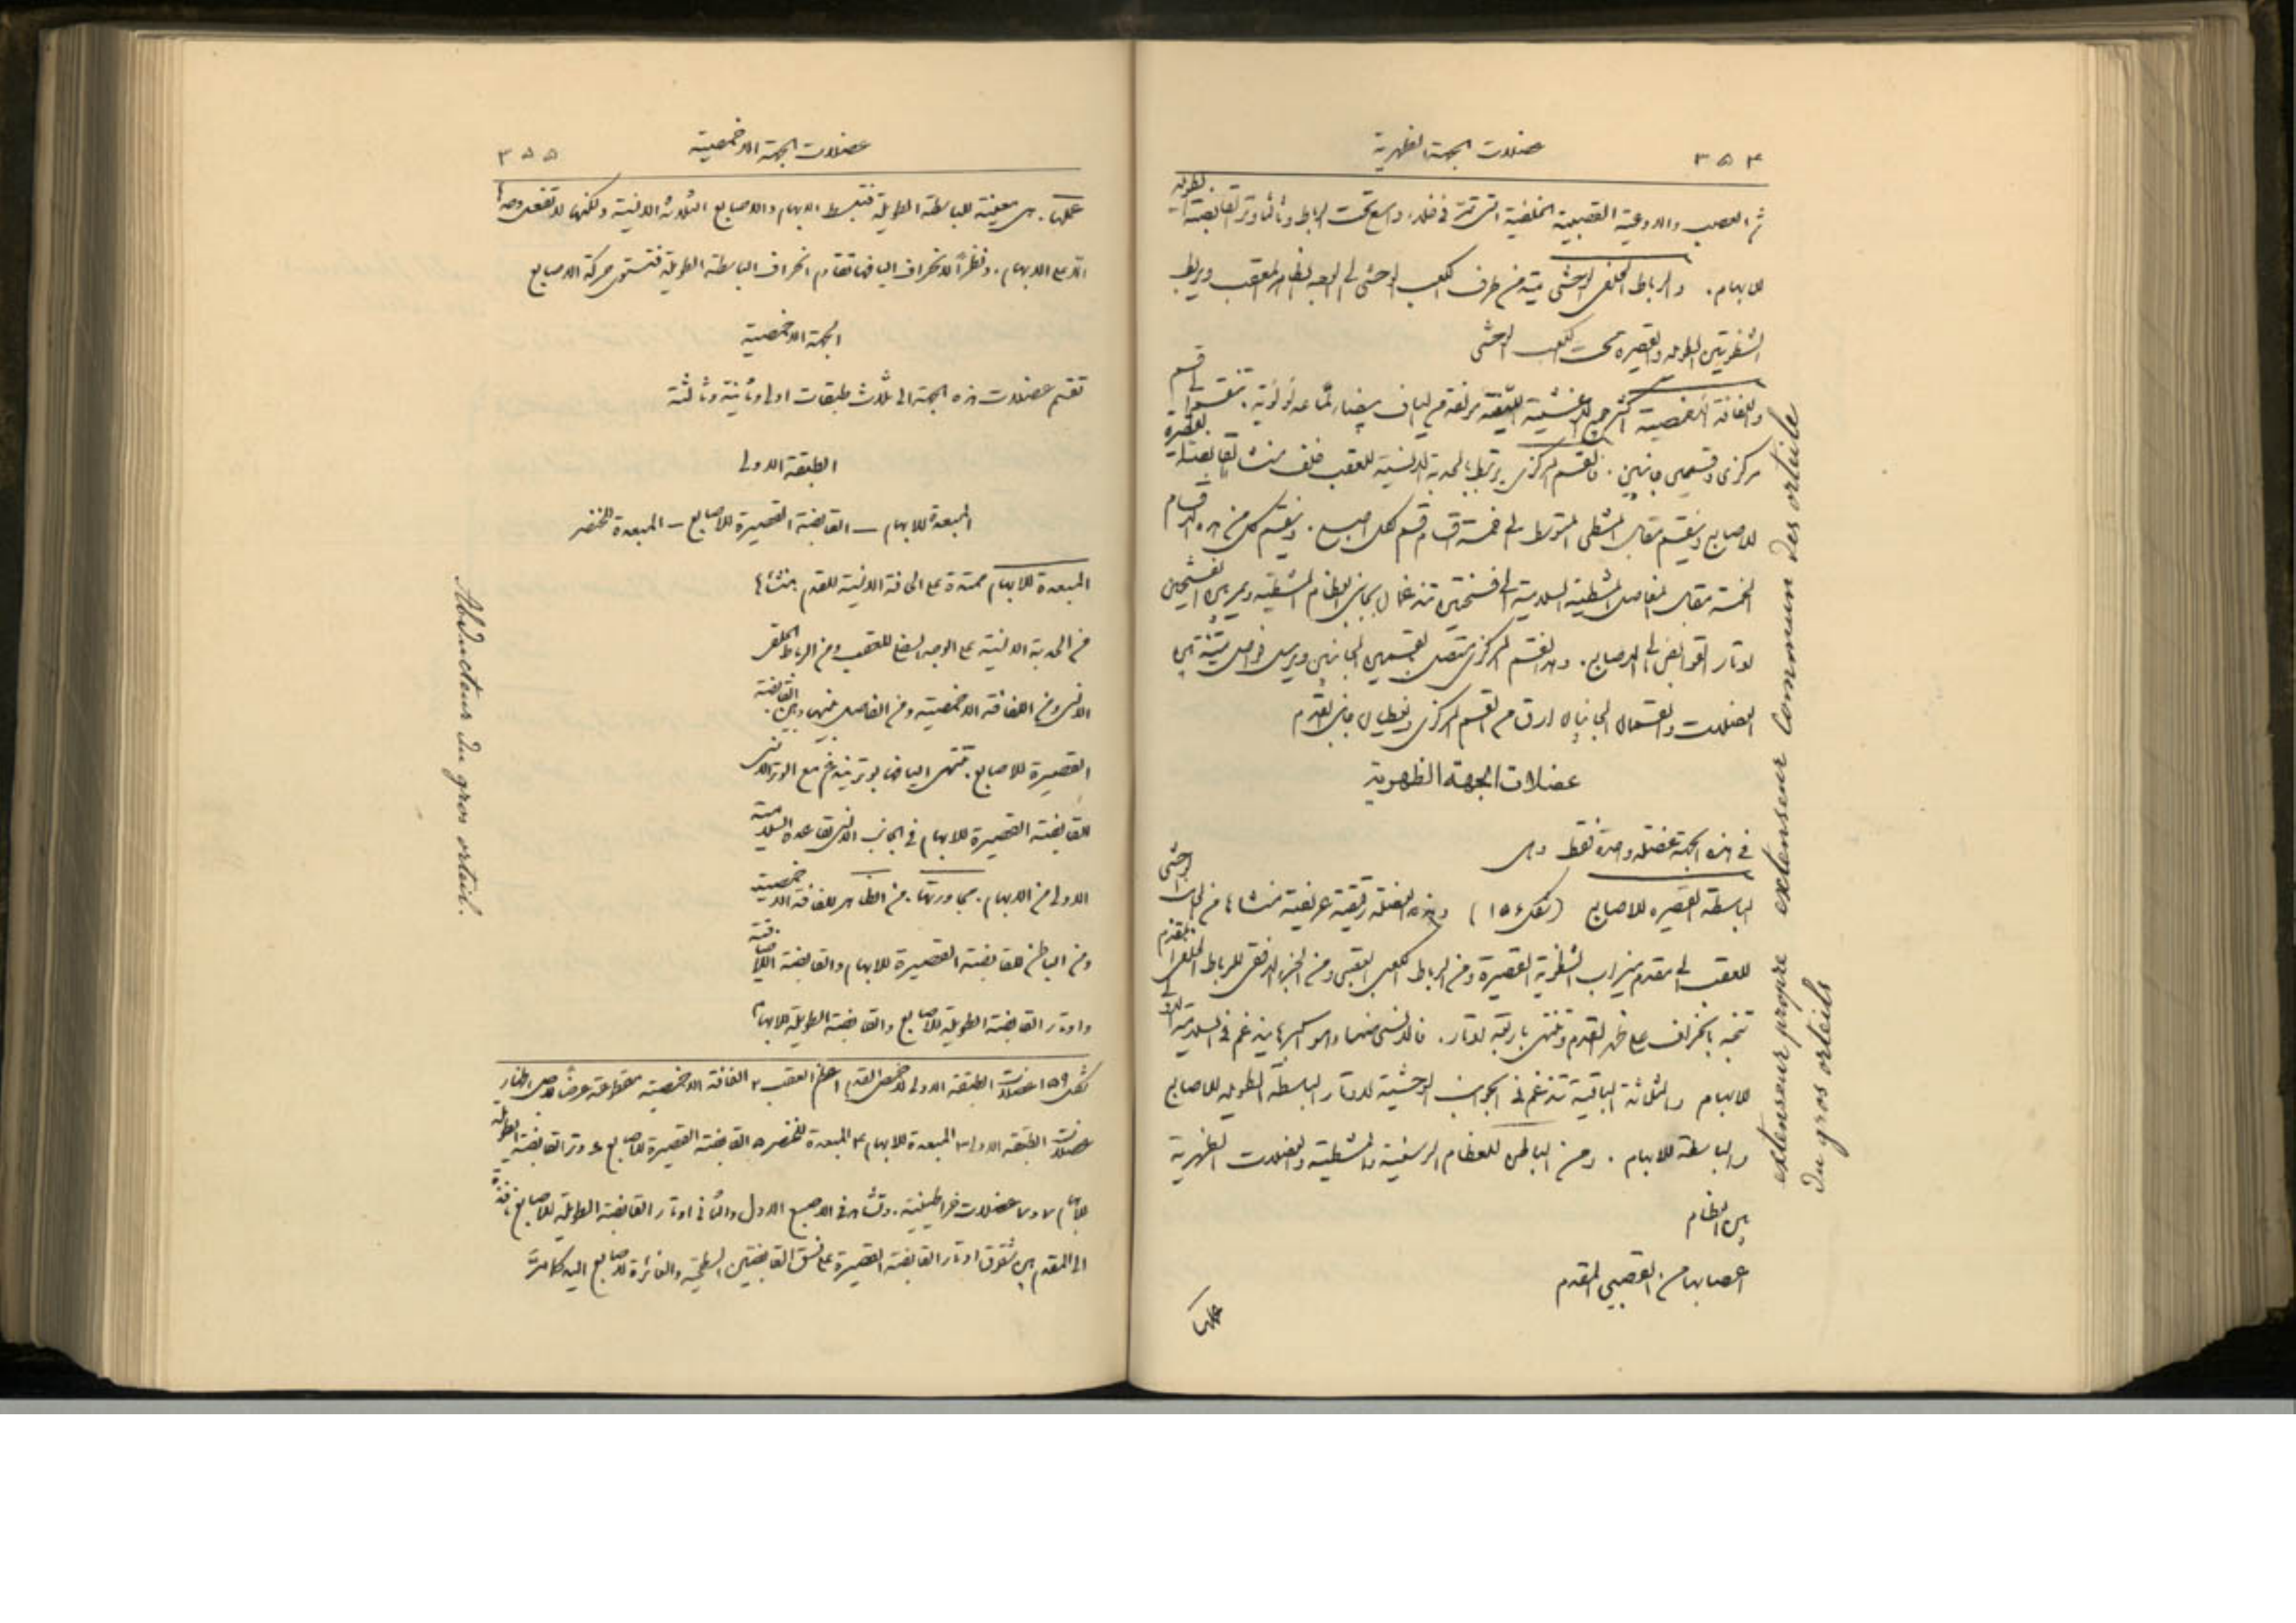 ٣٥٤
عضلات الجهة الظهرية
ثم العصب والاوعية القصبية الخلفية التى تمر فى خلاء واسع تحت الرباط وثالثا وتر القابضة الطويلة
للابهام. والرباط الحلقى الوحشى يمتد من طرف الكعب الوحشى الى الوجه الظاهر للعقب ويربط
الشظويتين الطويلة والقصيرة تحت الكعب الوحشى
واللفافة الاخمصية اكثر جميع الاغشية الليفية مؤلفة من الياف بيضاء لماعة لؤلؤية. تنقسم الى قسم
مركزى وقسمين جانبيين. فالقسم المركزى يرتبط بالحدبة الانسية للعقب خلف منشا القابضة القصيرة
للاصابع وينقسم مقابل المشطى المتوسط الى خمسة اقسام قسم لكل اصبع. وينقسم كل من هذه الاقسام
الخمسة مقابل المفاصل المشطية السلامية الى قسمين تندغمان بجانبى العظام المشطية ويمر بين القسمين
اوتار القوابض الى الاصابع. وهذا القسم المركزى متصل بالقسمين الجانبيين ويرسل فواصل متينة بين
العضلات والقسمان الجانبيان ارق من القسم المركزى ويغطيان جانبى القدم
عضلات الجهة الظهرية
فى هذه الجهة عضلة واحدة فقط وهى
الباسطة القصيرة للاصابع (شكل ١٥٦) وهذه العضلة رقيقة عريضة منشاها من الجانب الوحشى
للعقب الى مقدم ميزاب الشظوية القصيرة ومن الرباط الكعبى العقبى ومن الجزء الافقى للرباط الحلقى المقدم
تتجه بانحراف على ظهر القدم وتنتهى باربعة اوتار. فالانسى منها وهو اكبرها يندغم فى السلامية الاولى
للابهام والثلاثة الباقية تندغم فى الجوانب الوحشية لاوتار الباسطة الطويلة للاصابع
والباسطة للابهام. ومن الباطن للعظام الرسغية والمشطية والعضلات الظهرية
بين العظام
اعصابها من القصبى المقدم
عملها
extenseur propre extenseur commun des orteils
du gros orteils
٣٥٥
عضلات الجهة الاخمصية
عملها. هى معينة للباسطة الطويلة فتبسط الابهام والاصابع الثلاثة الانسية ولكنها لا تفعل وحدها
الا على الابهام. ونظراً لانحراف اليافها تقاوم انحراف الباسطة الطويلة فتستوى حركة الاصابع
الجهة الاخمصية
تقسم عضلات هذه الجهة الى ثلاث طبقات اولى وثانية وثالثة
الطبقة الاولى
المبعدة للابهام – القابضة القصيرة للاصابع – المبعدة للخنصر
المبعدة للابهام ممتدة على الحافة الانسية للقدم منشاها
من الحدبة الانسية على الوجه السفلى للعقب ومن الرباط الحلقى
الانسى ومن اللفافة الاخمصية ومن الفاصل بينها وبين القابضة
القصيرة للاصابع. تنتهى اليافها بوتر يندغم مع الوتر الانسى
للقابضة القصيرة للابهام فى الجانب الانسى لقاعدة السلامية
الاولى من الابهام. مجاورتها. من الظاهر للفافة الاخمصية
ومن الباطن للقابضة القصيرة للابهام والقابضة اللاضافية
واوتار القابضة الطويلة للاصابع والقابضة الطويلة للابهام
شكل ١٥٩ عضلات الطبقة الاولى لاخمص القدم ١ عظم العقب ٢ اللفافة الاخمصية مقطوعة عرضاً لاظهار
عضلات الطبقة الاولى ٣ المبعدة للابهام ٤ المبعدة للخنصر ٥ القابضة القصيرة للاصابع ٦ وتر القابضة الطويلة
للابهام ٧ و٧ عضلات خراطينية. وتشاهد فى الاصبع الاول والثانى اوتار القابضة الطويلة للاصابع نافذة
الى المقدم بين شقوق اوتار القابضة القصيرة على نسق القابضتين السطحية والغائرة لاصابع اليد كما مر
Abducteur du gros orteil.